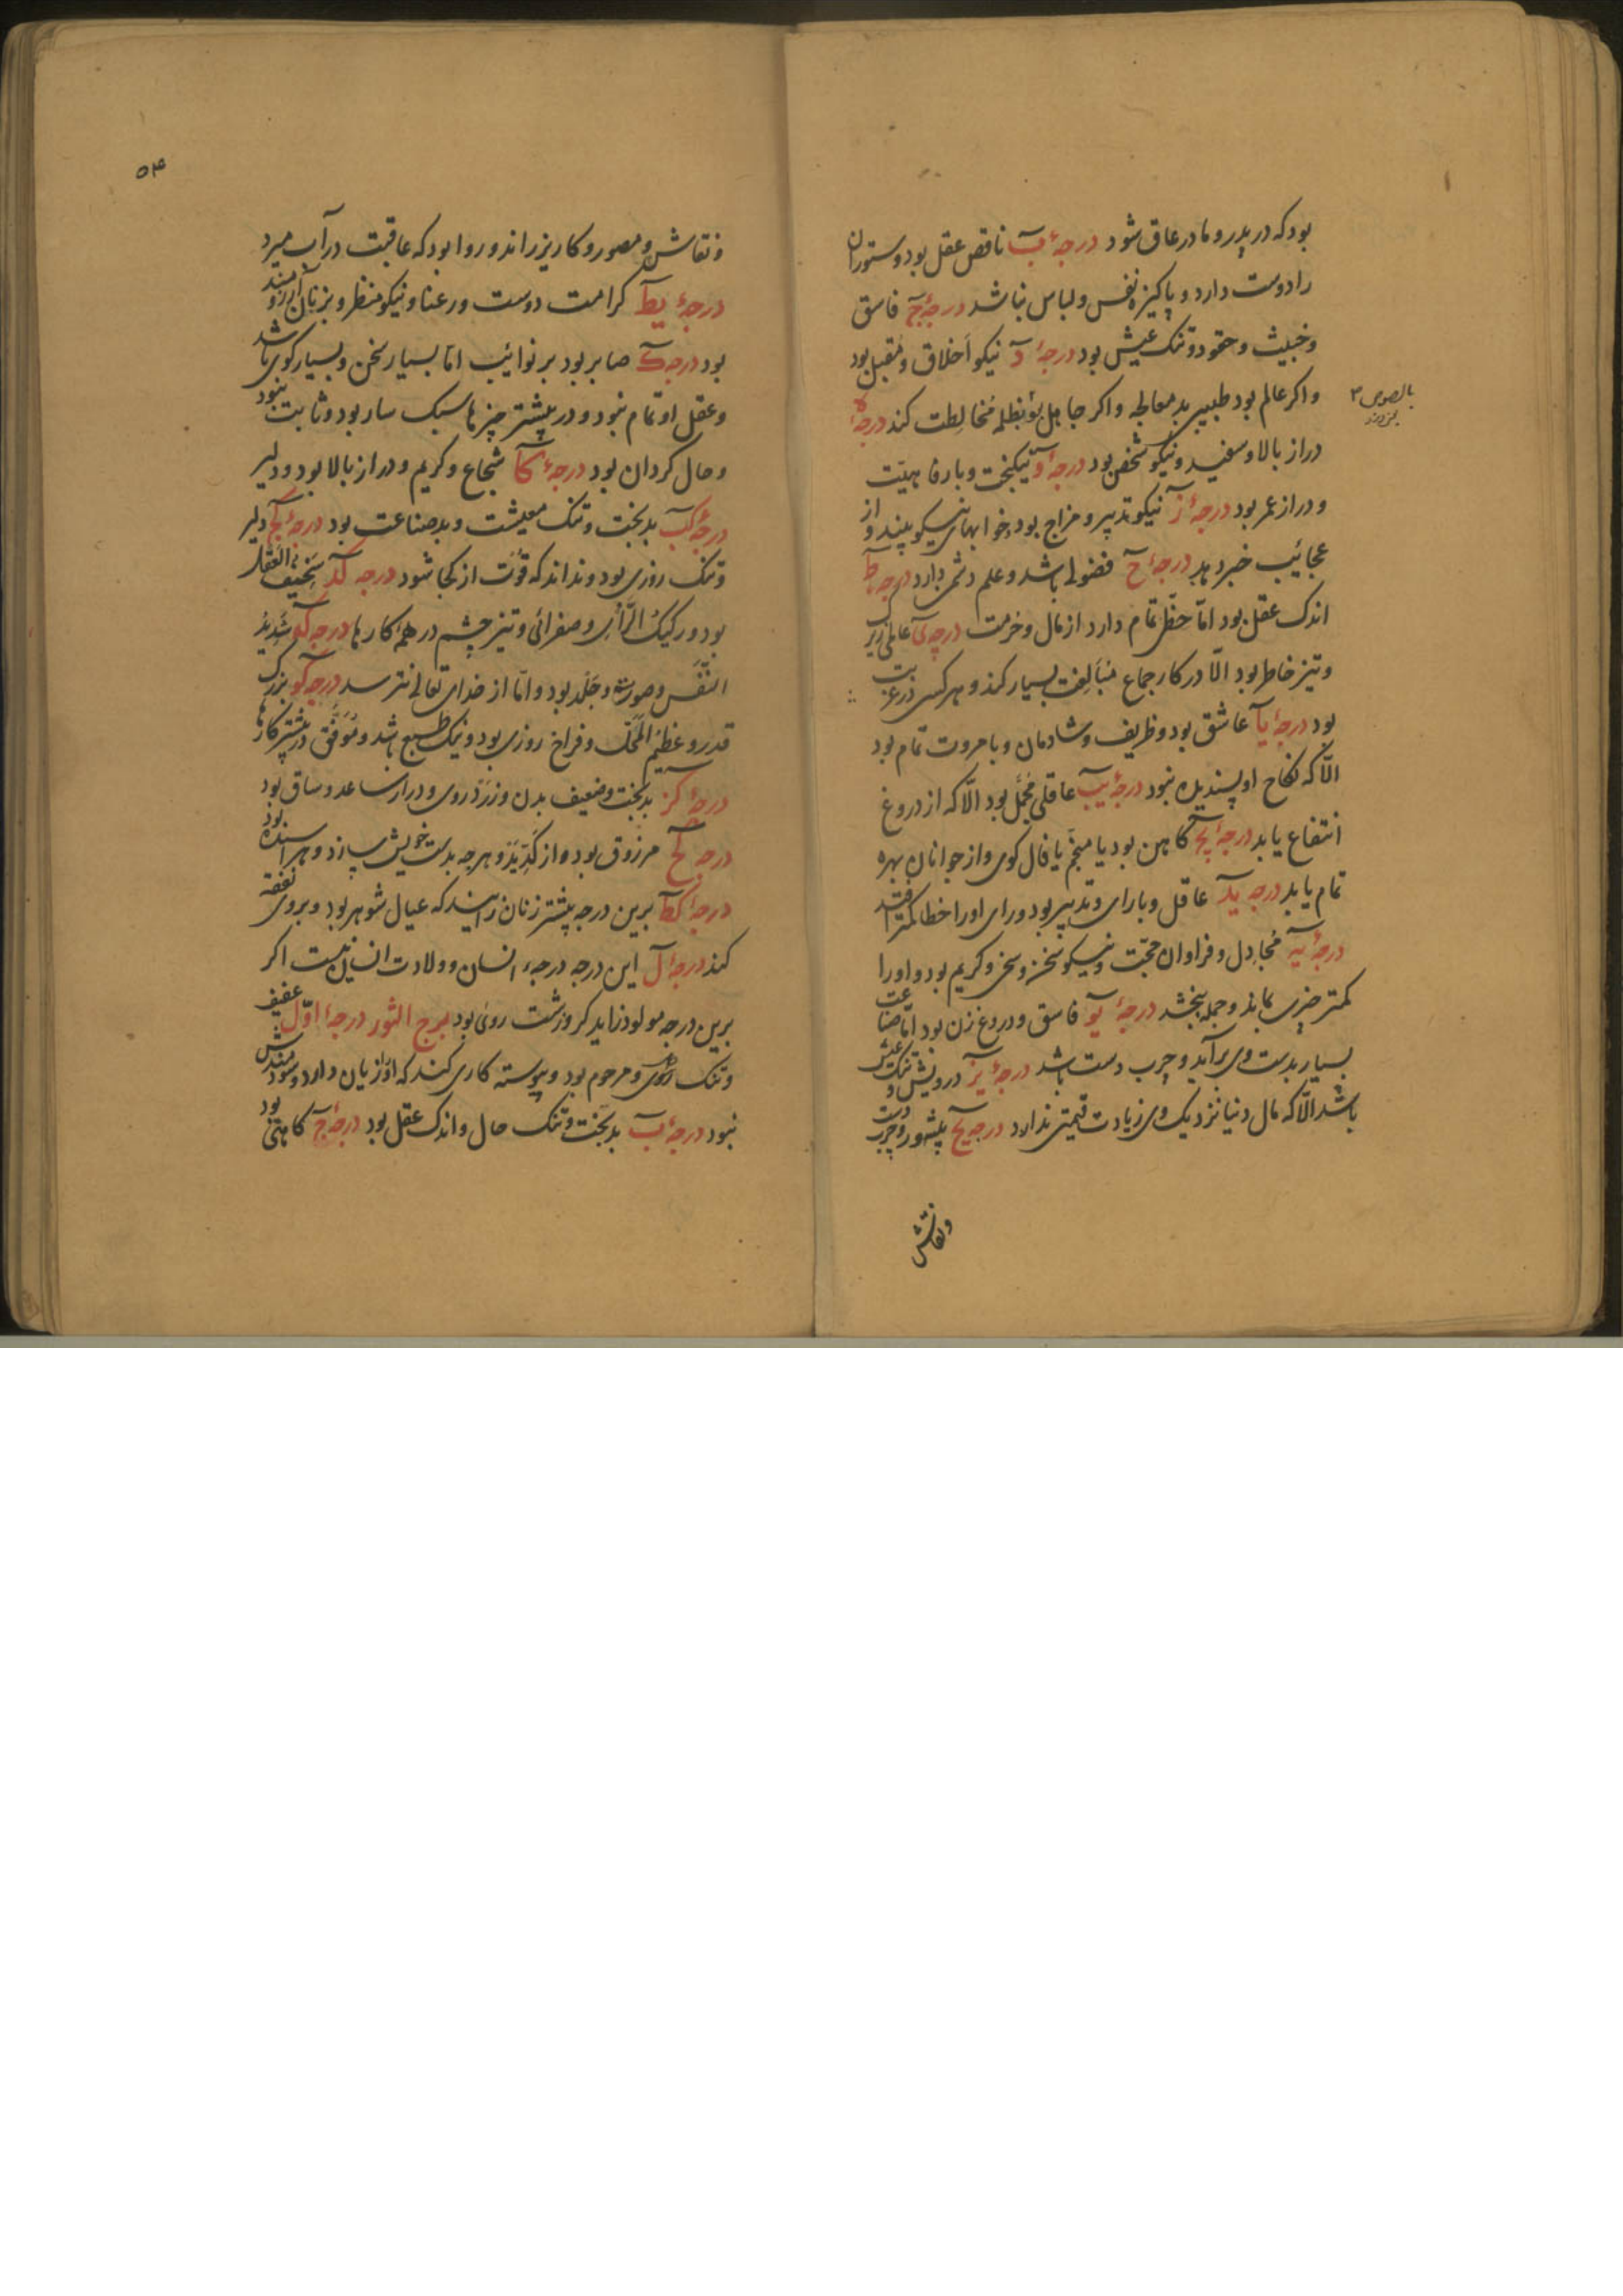 بود که در پدر و مادر عاق شود درجهٔ ب ناقص عقل بود و ستوران
را دوست دارد و پاکیزه نفس و لباس نباشد درجهٔ ج فاسق
و خبیث و حقود و تنک عیش بود درجهٔ د نیکو اخلاق و مقبل بود
و اکر عالم بود طبیبی بد معالجه و اکر جاهل بود بظلمه مخالطت کند درجهٔ ه
دراز بالا و سفید و نیکو شخص بود درجهٔ و نیکبخت و با رفاهیت
و دراز عمر بود درجهٔ ز نیکو تدبیر و مزاج بود و خوابهای نیکو بیند و از
عجائب خبر دهد درجهٔ ح فضولی باشد و علم دشمن دارد درجه ط
اندک عقل بود اما حظی تمام دارد از مال و حرمت درجه ی عالمی زیرک
و تیز خاطر بود الا در کار جماع مبالغت بسیار کند و هر کسی در غیبت
بود درجهٔ یا عاشق بود و ظریف و شادمان و با مروت تمام بود
الا که نکاح او پسندیده نبود درجهٔ یب عاقلی مجمل بود الا که از دروغ
انتفاع یابد درجهٔ یج کاهن بود یا منجم یا فال کوی و از جوانان بهره
تمام یابد درجه ید عاقل و با رای و تدبیر بود و رای او را خطا کمتر افتد
درجهٔ یه مجادل و فراوان حجت و نیکو سخن و سخی و کریم بود و او را
کمتر چیزی بماند و جمله ببخشد درجهٔ یو فاسق و دروغ زن بود اما صناعت
بسیار بدست وی برآید و چرب دست باشد درجهٔ یز درویش و تنک عیش
باشد الا که مال دنیا نزدیک وی زیادت قیمتی ندارد درجه یح پیشه ور و چرب دست
و نقاش
۵۴
و نقاش و مصور و کاریز راند و روا بود که عاقبت در آب میرد
درجهٔ یط کرامت دوست و رعنا و نیکو منظر و بزنان آرزومند
بود درجه ک صابر بود بر نوائب اما بسیار سخن و بسیار کوی باشد
و عقل او تمام نبود و در بیشتر چیزها سبک سار بود و ثابت نبود
و حال کردان بود درجهٔ کا شجاع و کریم و دراز بالا بود و دلیر
درجهٔ کب بدبخت و تنک معیشت و بد صناعت بود درجهٔ کج دلیر
و تنک روزی بود و نداند که قوت از کجا شود درجه کد سخیف العقل
بود و رکیک الرأی و صفرائی و تیز چشم در همه کارها درجه که شدید
النفس و صورت و جلد بود و اما از خدای تعالی نترسد درجه کو بزرک
قدر و عظیم المحل و فراخ روزی بود و نیک طبع باشد و موفق در بیشتر کارها
درجهٔ کز بدبخت و ضعیف بدن و زرد روی و دراز ساعد و ساق بود
درجه کح مرزوق بود و از کد ید و هر چه بدست خویش سازد و هر
درجهٔ کط برین درجه بیشتر زنان زایند که عیال شوهر بود و بروی نفقه
کند درجهٔ ل این درجه درجهٔ انسان و ولادت انسان نیست اکر
برین درجه مولود زاید کر و زشت روی بود برج الثور درجهٔ اوّل عفیف
و تنک روی و مرحوم بود و پیوسته کاری کند که او را زیان دارد و سودمندش
نبود درجهٔ ب بدبخت و تنک حال و اندک عقل بود درجهٔ ج کاهنی بود